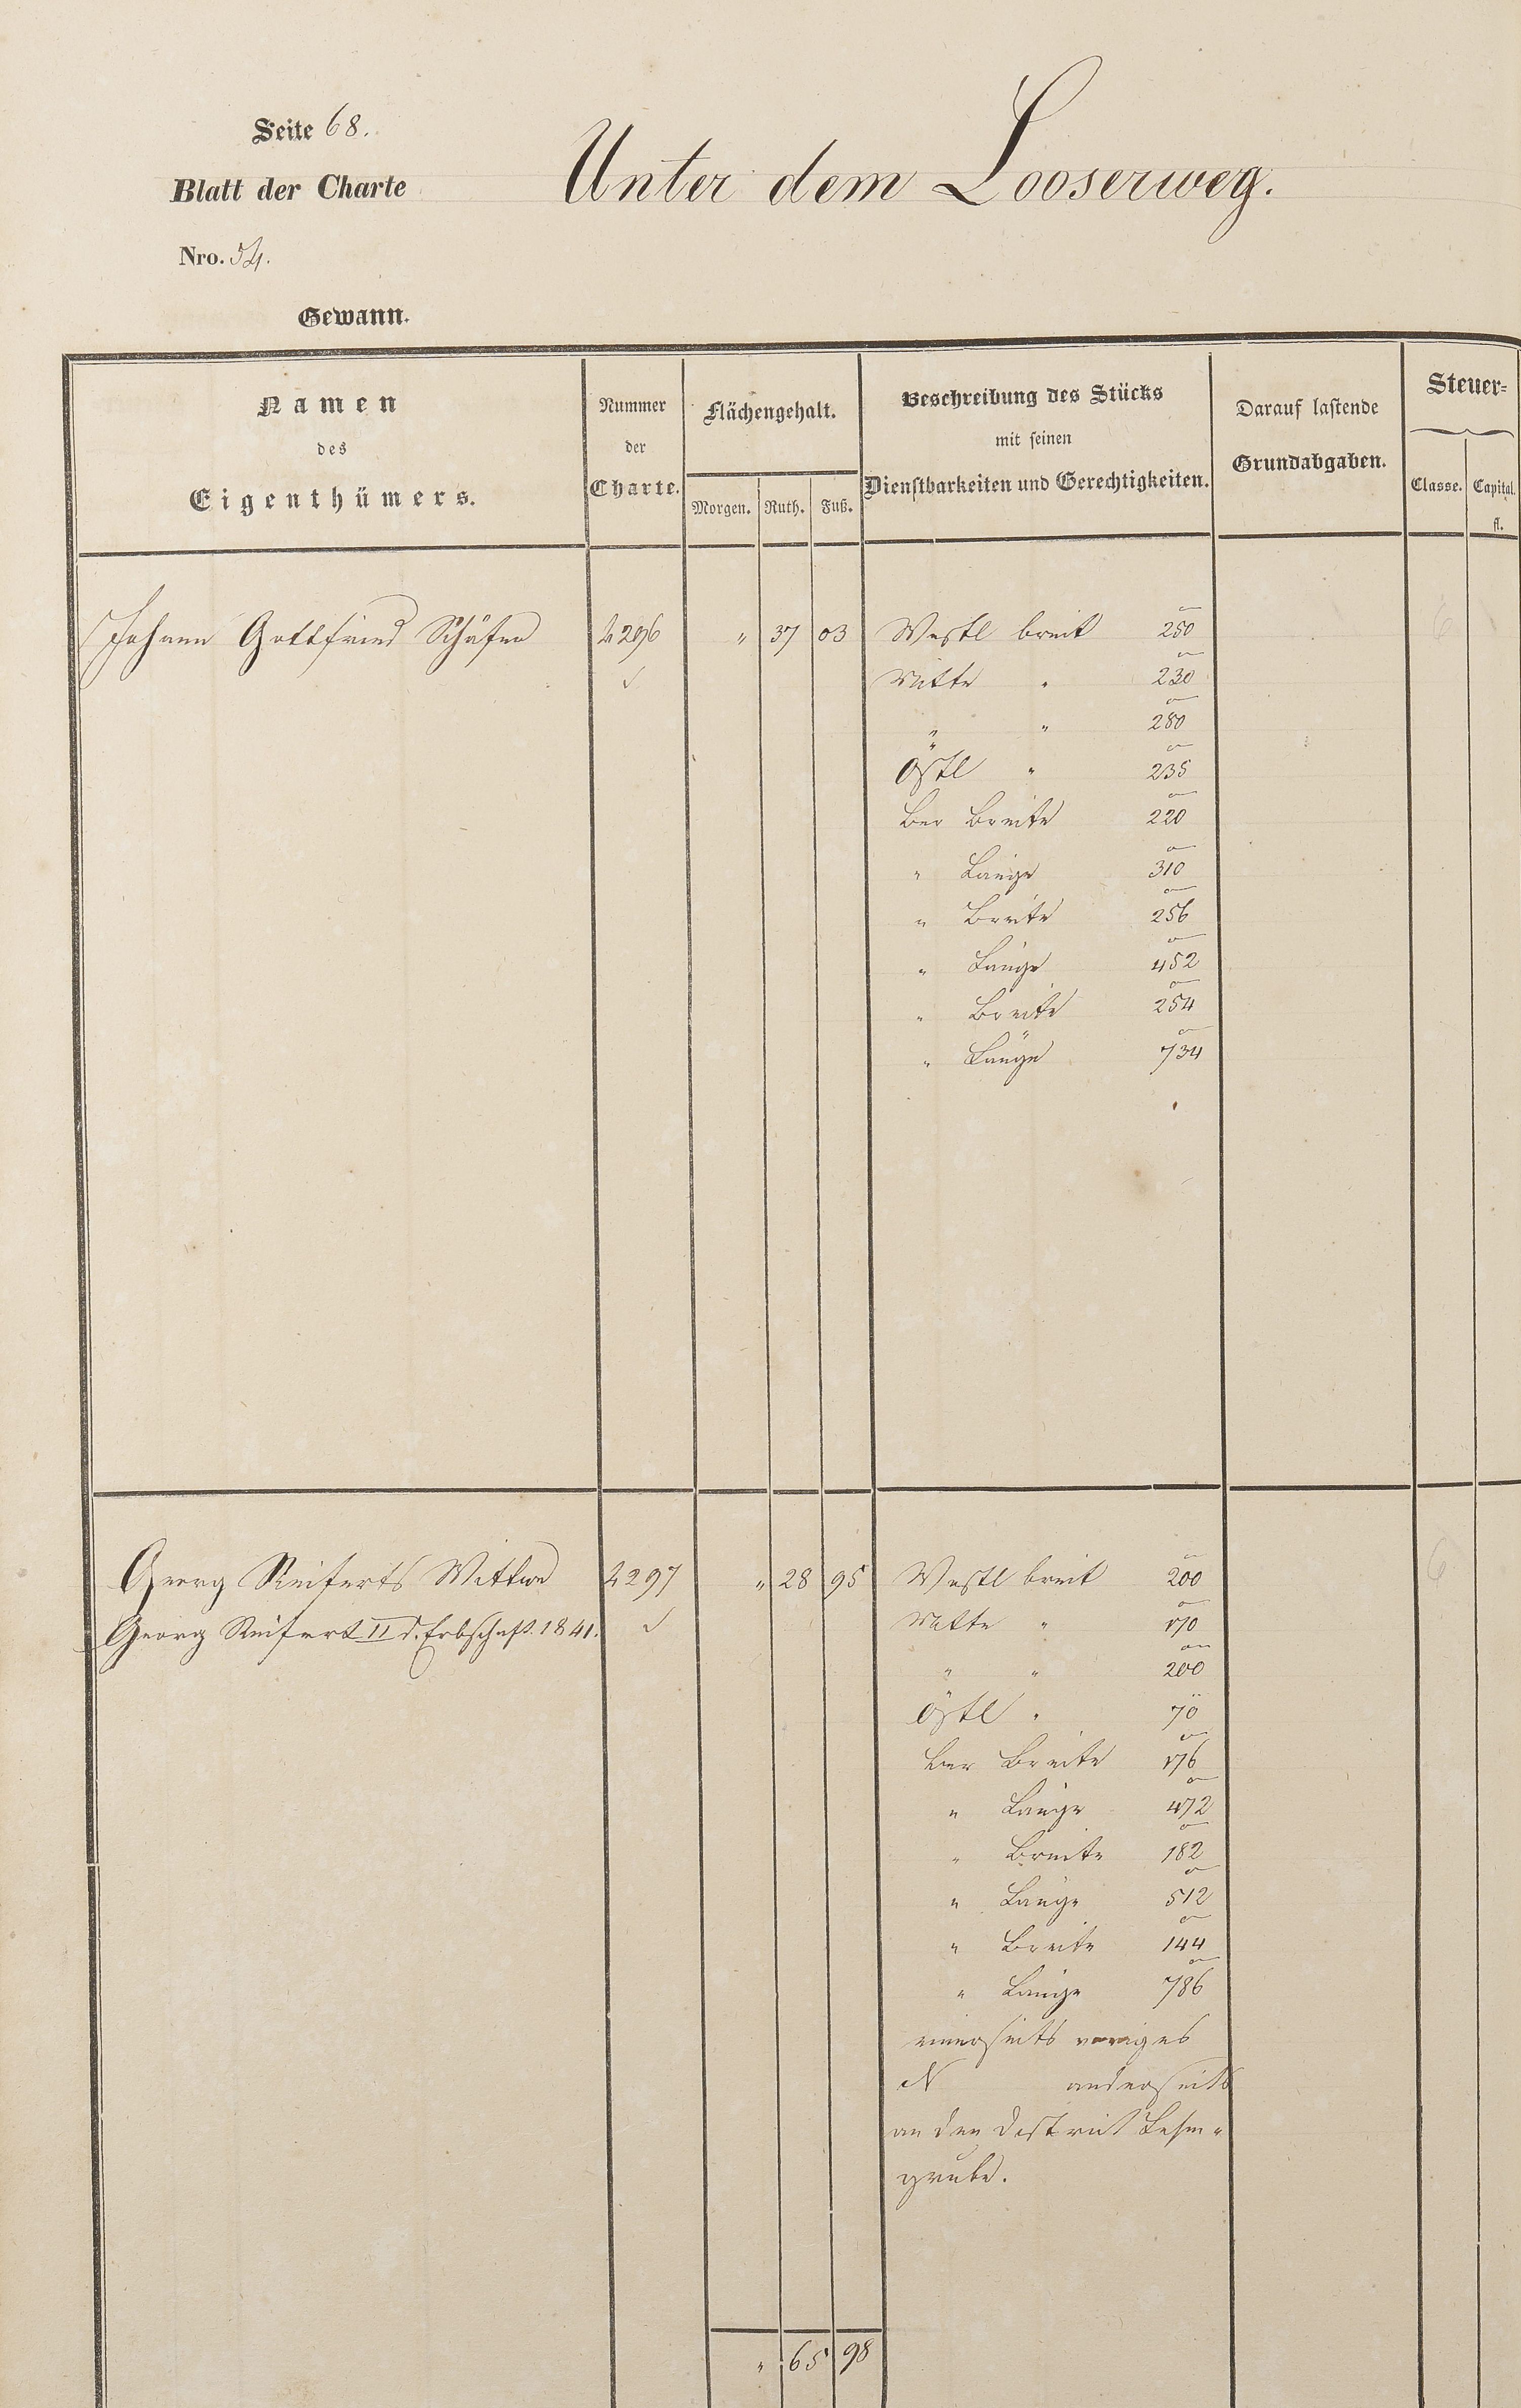 Seite 68.
Blatt der Charte
Nro. 54.
Gewann.
Unter dem Looserweg.
Namen
des
Eigenthümers.
Nummer
der
Charte.
Flächengehalt.
Morgen. Ruth. Fuß.
Beschreibung des Stücks
mit seinen
Dienstbarkeiten und Gerechtigkeiten.
Darauf lastende
Grundabgaben.
Steuer=
Classe. Capital.
fl.
Johann Gottfried Schäfer 4296 " 37 03 Westl breit 250 6
✓ Mitte " 230
" " 280
Östl " 235
Ber Breite 220
" Länge 310
" Breite 256
" Länge 452
" Breite 254
" Länge 734
Georg Reiferts Wittwe 4297 " 28 95 Westl breit 200 6
Georg Reifert II d. Erbschaft. 1841. ✓ Mitte " 170
" " 200
Östl " 70
Ber Breite 176
" Länge 472
" Breite 182
" Länge 512
" Breite 144
" Länge 786
einerseits voriges
N anderseits
an den District Lehm-
grube.
" 65 98